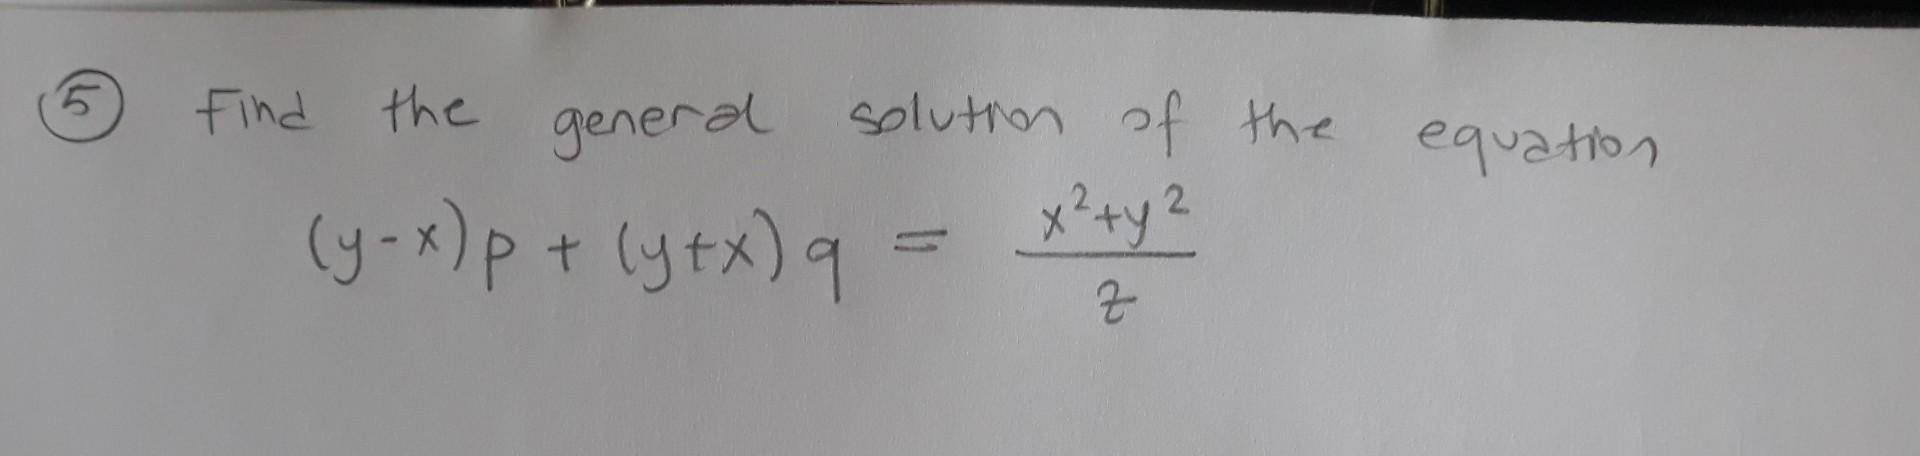 5 Find the general solution of the equation
(y-x)p + (y+x)q = \frac{x^2+y^2}{z}